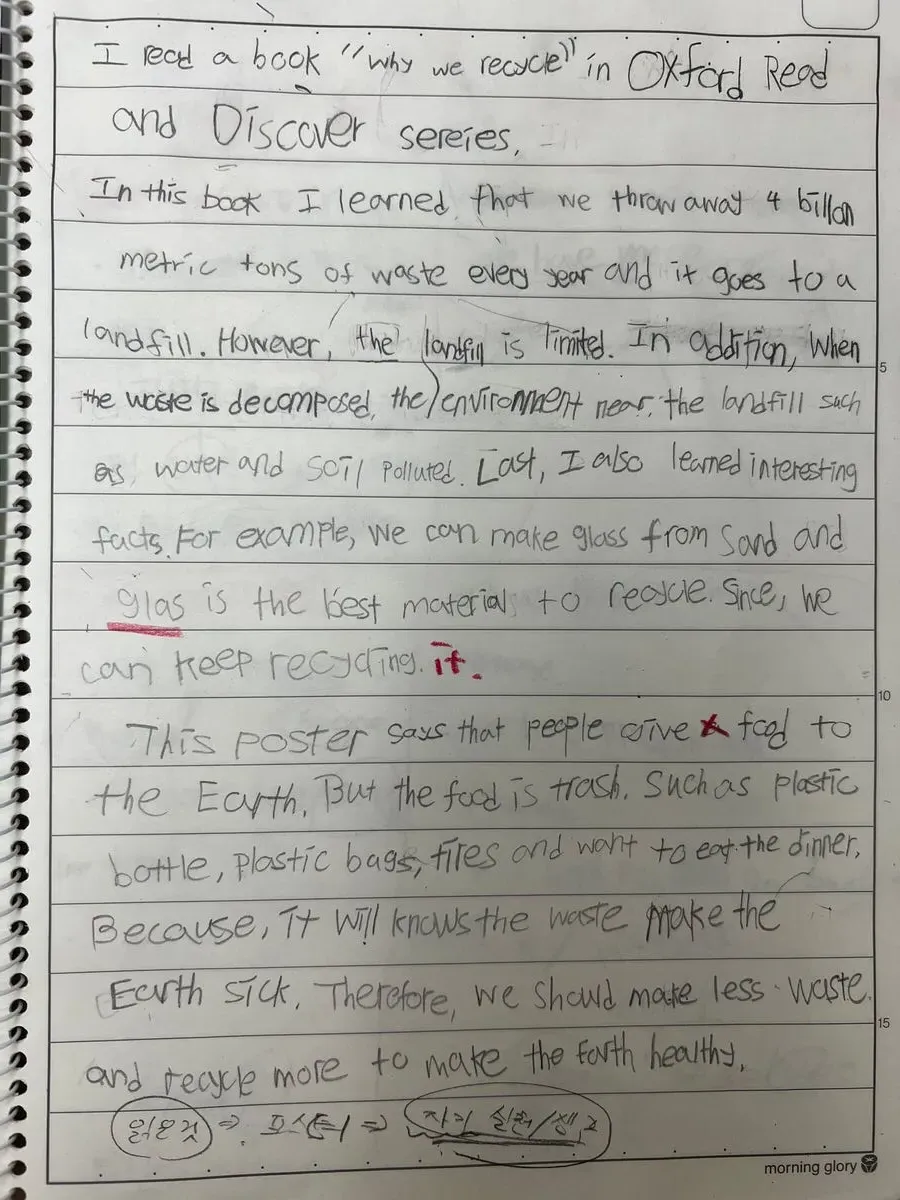 I read a book "why we recycle" in Oxford Read
and Discover sereies.
In this book I learned that we throw away 4 billon
metric tons of waste every year and it goes to a
landfill. However, the landfill is limited. In addition, when
the waste is decomposed, the environment near the landfill such
as water and soil polluted. Last, I also learned interesting
facts. For example, we can make glass from sand and
glas is the best material to recycle. Since, we
can keep recycling. it.
This poster says that people give food to
the Earth. But the food is trash. Such as plastic
bottle, plastic bags, tires and want to eat the dinner.
Because, it will knows the waste make the
Earth sick. Therefore, we should make less waste.
and recycle more to make the Earth healthy.
읽은것 ⇒ 포스터 ⇒ 자기 실천/
morning glory
5
10
15